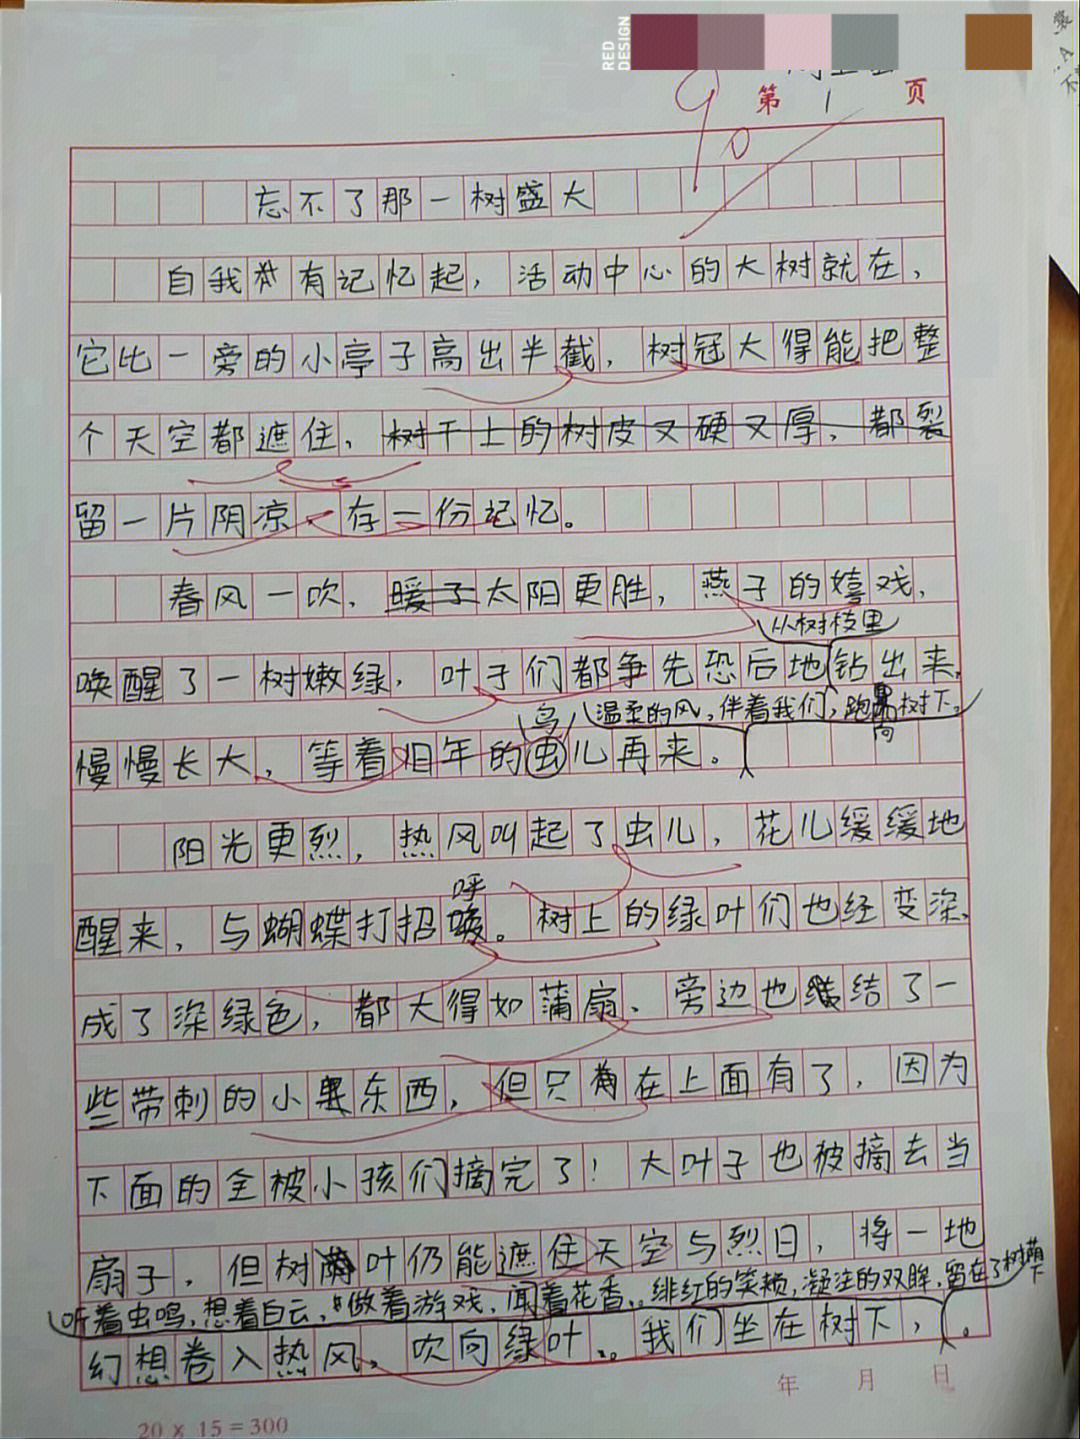 RED DESIGN
90
第 1 页
忘不了那一树盛大
自我有记忆起，活动中心的大树就在，
它比一旁的小亭子高出半截，树冠大得能把整
个天空都遮住，树干上的树皮又硬又厚，都裂
留一片阴凉，存一份记忆。
春风一吹，暖子太阳更胜，燕子的嬉戏，
从树枝里
唤醒了一树嫩绿，叶子们都争先恐后地钻出来，
鸟 温柔的风，伴着我们，跑向树下。
慢慢长大，等着旧年的虫儿再来。
阳光更烈，热风叫起了虫儿，花儿缓缓地
呼
醒来，与蝴蝶打招唤。树上的绿叶们也经变深，
成了深绿色，都大得如蒲扇，旁边也结了一
些带刺的小东西，但只在上面有了，因为
下面的全被小孩们摘完了！大叶子也被摘去当
扇子，但树叶仍能遮住天空与烈日，将一地
听着虫鸣，想着白云，做着游戏，闻着花香。绯红的笑颊，凝注的双眸，留在了树下
幻想卷入热风，吹向绿叶。我们坐在树下，。
年 月 日
20 x 15 = 300